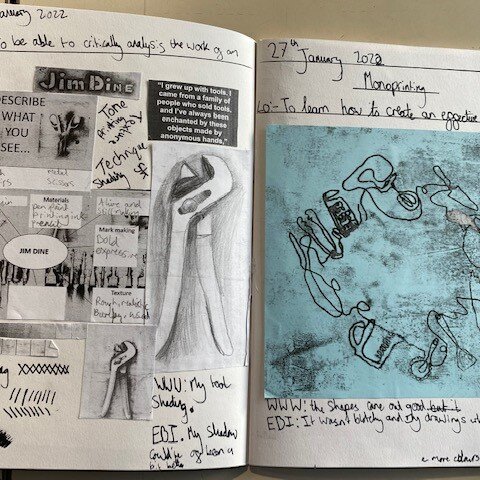 anuary 2022
o be able to critically analysis the work of an
JIM DINE
"I grew up with tools. I
came from a family of
people who sold tools,
and I've always been
enchanted by these
objects made by
anonymous hands,"
DESCRIBE
WHAT
YOU
SEE...
Metal
Scissors
Tone
Technique
Shading
Materials
printing ink
Mark making
Bold
expressive
JIM DINE
Texture
WWW: My tool
Shading.
EBI. My Shadow
Could've of been a
bit better
27th January 2022
Monoprinting
LO:- To learn how to create an effective
WWW: the Shapes came out good but it
EBI: It wasn't blotchy and my drawings w
e more colours